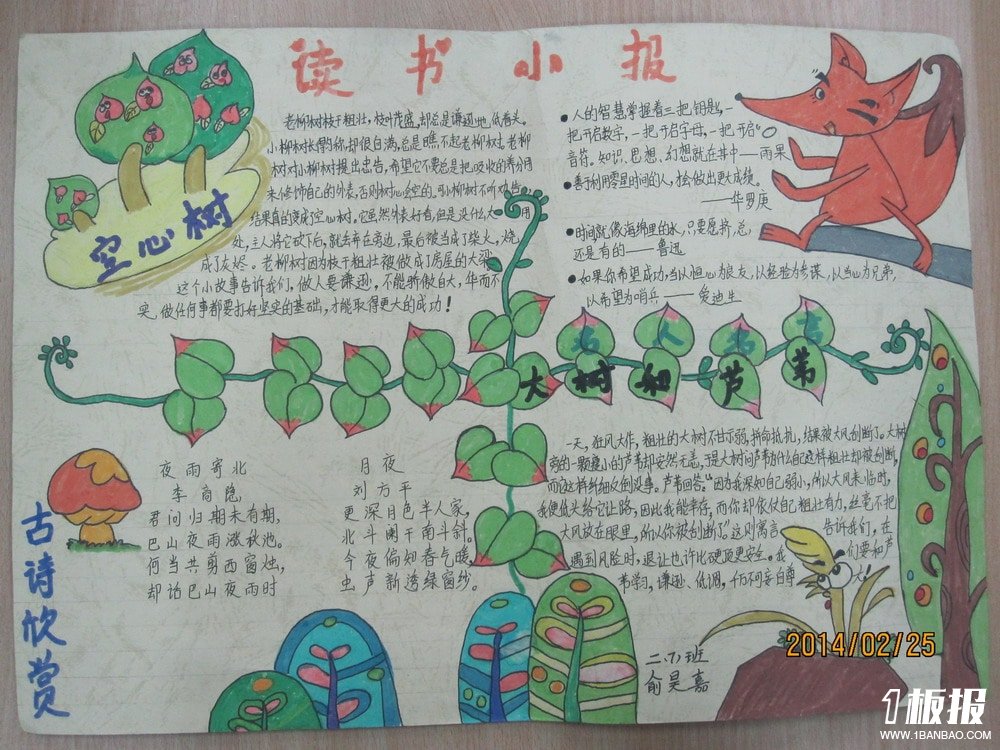 读书小报
空心树
老柳树枝干粗壮,枝叶茂盛,却总是谦逊地低着头。
小柳树长得的你,却很自满,总是瞧不起老柳树。老柳
树对小柳树提出忠告,希望它不要总是把吸收的养分用
来修饰自己的外表,否则树心会空的。可小柳树不听劝告,
结果真的变成了空心树,它虽然外表好看,但是没什么大用
处,主人将它砍下后,就丢弃在旁边,最后被当成了柴火,烧
成了灰烬。老柳树因为枝干粗壮被做成了房屋的大梁。
这个小故事告诉我们,做人要谦逊,不能骄傲自大,华而不
实,做任何事都要打好坚实的基础,才能取得更大的成功!
●人的智慧掌握着三把钥匙,一
把开启数字,一把开启字母,一把开启
音符。知识、思想、幻想就在其中——雨果
●善于利用零星时间的人,才会做出更大成绩。
——华罗庚
●时间就像海绵里的水,只要愿挤,总
还是有的——鲁迅
●如果你希望成功,当以恒心为良友,以经验为参谋,以当心为兄弟,
以希望为哨兵——爱迪生
名人名言
大树和芦苇
一天,狂风大作,粗壮的大树不甘示弱,拼命抵抗,结果被大风刮断了。大树
旁的一颗瘦小的芦苇却安然无恙,于是大树问芦苇为什么自己这样粗壮却被刮断,
而你这样纤细反倒没事。芦苇回答:“因为我深知自己弱小,所以大风来临时,
我便低头给它让路,因此我能幸存,而你却依仗自己粗壮有力,丝毫不把
大风放在眼里,所以你被刮断了。”这则寓言告诉我们,在
遇到风险时,退让也许比硬顶更安全。我们要和芦
苇学习,谦逊、低调,千万不妄自尊大!
古诗欣赏
夜雨寄北
李商隐
君问归期未有期,
巴山夜雨涨秋池。
何当共剪西窗烛,
却话巴山夜雨时
月夜
刘方平
更深月色半人家,
北斗阑干南斗斜。
今夜偏知春气暖,
虫声新透绿窗纱。
二.(1)班
俞昊嘉
2014/02/25
1板报
WWW.1BANBAO.COM